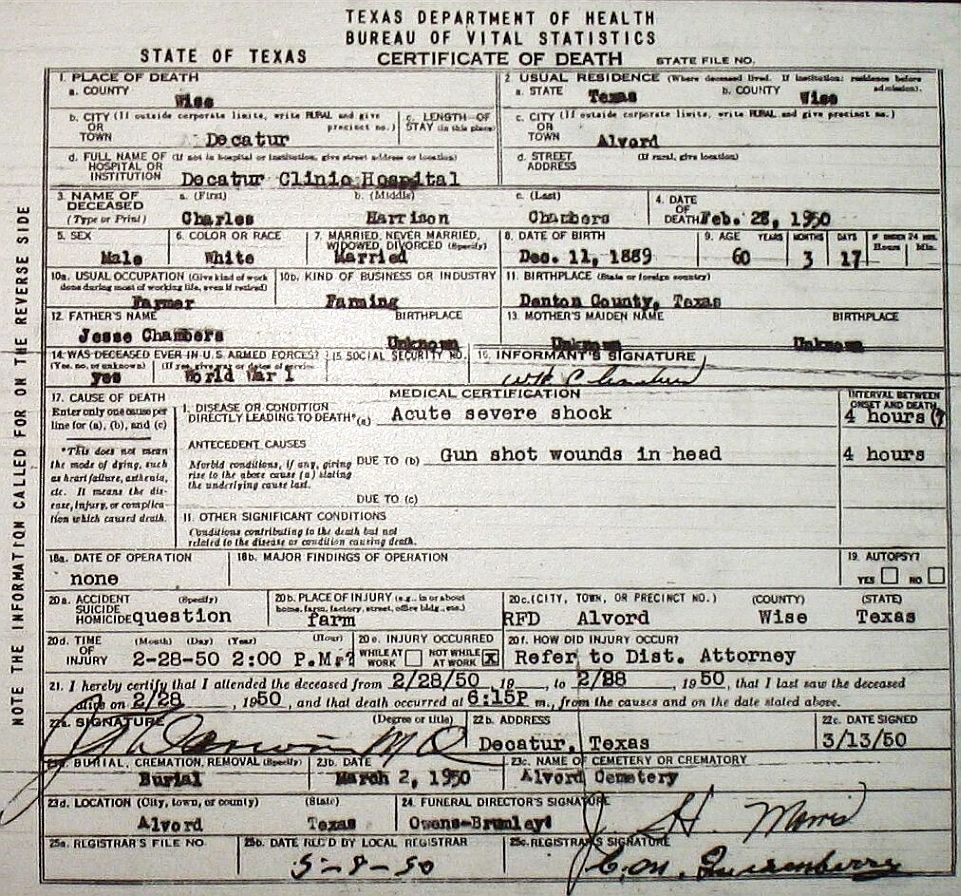 TEXAS DEPARTMENT OF HEALTH
BUREAU OF VITAL STATISTICS
STATE OF TEXAS CERTIFICATE OF DEATH STATE FILE NO.
NOTE THE INFORMATION CALLED FOR ON THE REVERSE SIDE
1. PLACE OF DEATH
a. COUNTY Wise
2. USUAL RESIDENCE (Where deceased lived. If institution: residence before admission).
a. STATE Texas b. COUNTY Wise
b. CITY (If outside corporate limits, write RURAL and give precinct no.) OR TOWN Decatur
c. LENGTH OF STAY (in this place)
c. CITY (If outside corporate limits, write RURAL and give precinct no.) OR TOWN Alvord
d. FULL NAME OF (If not in hospital or institution, give street address or location) HOSPITAL OR INSTITUTION Decatur Clinic Hospital
d. STREET ADDRESS (If rural, give location)
3. NAME OF DECEASED (Type or Print) a. (First) Charles b. (Middle) Harrison c. (Last) Chambers
4. DATE OF DEATH Feb. 28, 1950
5. SEX Male
6. COLOR OR RACE White
7. MARRIED, NEVER MARRIED, WIDOWED, DIVORCED (Specify) Married
8. DATE OF BIRTH Dec. 11, 1889
9. AGE YEARS 60 MONTHS 3 DAYS 17 IF UNDER 24 HRS. Hours Min.
10a. USUAL OCCUPATION (Give kind of work done during most of working life, even if retired) Farmer
10b. KIND OF BUSINESS OR INDUSTRY Farming
11. BIRTHPLACE (State or foreign country) Denton County, Texas
12. FATHER'S NAME Jesse Chambers BIRTHPLACE Unknown
13. MOTHER'S MAIDEN NAME Unknown BIRTHPLACE Unknown
14. WAS DECEASED EVER IN U.S. ARMED FORCES? (Yes, no, or unknown) yes (If yes, give war or dates of service) World War 1
15. SOCIAL SECURITY NO.
16. INFORMANT'S SIGNATURE
MEDICAL CERTIFICATION
17. CAUSE OF DEATH
Enter only one cause per line for (a), (b), and (c)
*This does not mean the mode of dying, such as heart failure, asthenia, etc. It means the disease, injury, or complication which caused death.
I. DISEASE OR CONDITION DIRECTLY LEADING TO DEATH* (a) Acute severe shock
INTERVAL BETWEEN ONSET AND DEATH
4 hours (?)
ANTECEDENT CAUSES
Morbid conditions, if any, giving rise to the above cause (a) stating the underlying cause last.
DUE TO (b) Gun shot wounds in head 4 hours
DUE TO (c)
II. OTHER SIGNIFICANT CONDITIONS
Conditions contributing to the death but not related to the disease or condition causing death.
18a. DATE OF OPERATION none
18b. MAJOR FINDINGS OF OPERATION
19. AUTOPSY? YES NO
20a. ACCIDENT SUICIDE HOMICIDE (Specify) question
20b. PLACE OF INJURY (e.g., in or about home, farm, factory, street, office bldg., etc.) farm
20c. (CITY, TOWN, OR PRECINCT NO.) (COUNTY) (STATE)
RFD Alvord Wise Texas
20d. TIME OF INJURY (Month) (Day) (Year) (Hour) 2-28-50 2:00 P.M?
20e. INJURY OCCURRED WHILE AT WORK NOT WHILE AT WORK X
20f. HOW DID INJURY OCCUR?
Refer to Dist. Attorney
21. I hereby certify that I attended the deceased from 2/28/50, 19 , to 2/28, 1950, that I last saw the deceased
alive on 2/28, 1950, and that death occurred at 6:15P m., from the causes and on the date stated above.
22a. SIGNATURE (Degree or title) M D
22b. ADDRESS Decatur, Texas
22c. DATE SIGNED 3/13/50
BURIAL, CREMATION, REMOVAL (Specify) Burial
23b. DATE March 2, 1950
23c. NAME OF CEMETERY OR CREMATORY Alvord Cemetery
23d. LOCATION (City, town, or county) Alvord (State) Texas
24. FUNERAL DIRECTOR'S SIGNATURE
Owens-Brumleys J. H. Morris
25a. REGISTRAR'S FILE NO.
25b. DATE REC'D BY LOCAL REGISTRAR
25c. REGISTRAR'S SIGNATURE